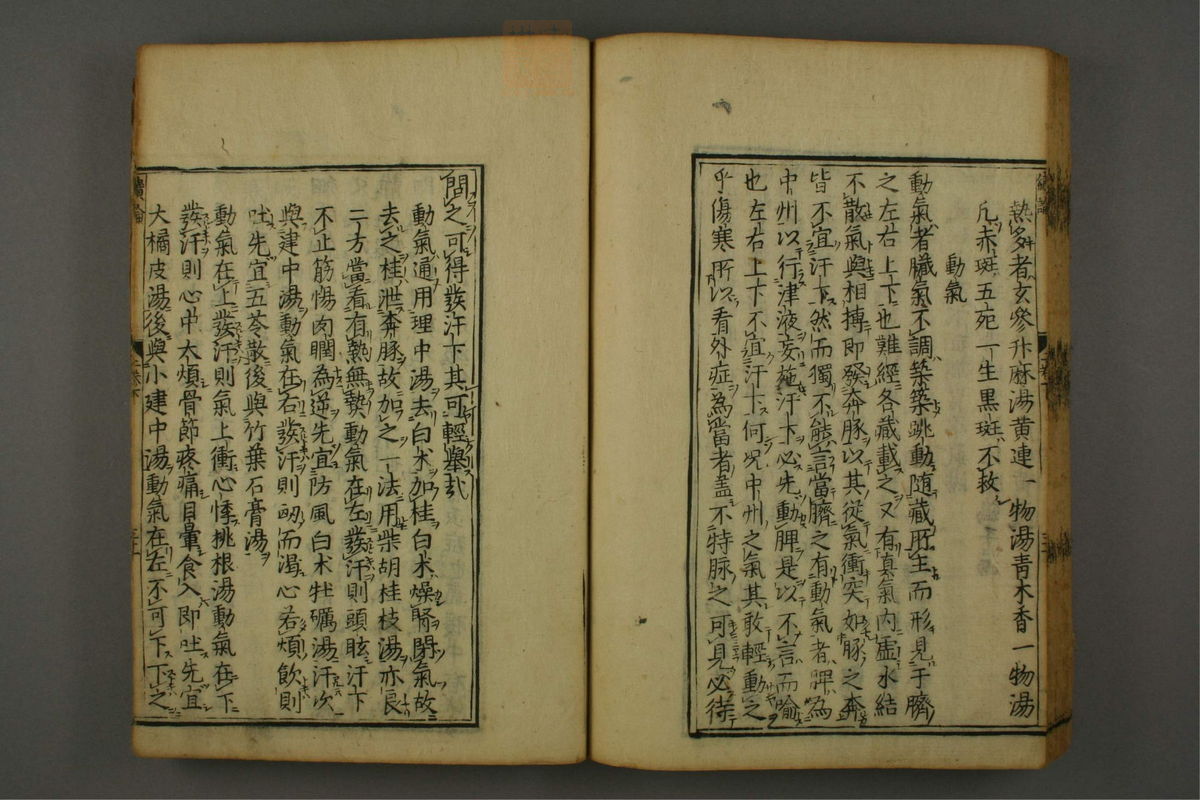 熱多者玄參升麻湯黄連一物湯青木香一物湯
凡赤斑五死一生黒斑不救
動氣
動氣者臓氣不調築築跳動随藏所主而形見于臍
之左右上下也難經各藏載之又有真氣内虚水結
不散氣與相搏即發奔豚以其從氣衝突如豚之奔
皆不宜汗下然而獨不能言當臍之有動氣者脾為
中州以行津液妄施汗下必先動脾是以不言而喻
也左右上下不宜汗下何况中州之氣其敢輕動之
乎傷寒所以看外症為當者盖不特脉之可見必待
問之可得發汗下其可輕舉哉
動氣通用理中湯去白朮加桂白朮燥腎閉氣故
去之桂泄奔豚故加之一法用柴胡桂枝湯亦良
二方當看有熱無熱動氣在左發汗則頭眩汗下
不止筋惕肉瞤為逆先宜防風白朮牡蠣湯汗次
與建中湯動氣在右發汗則衂而渴心若煩飲則
吐先宜五苓散後與竹葉石膏湯
動氣在上發汗則氣上衝心悸桃根湯動氣在下
發汗則心中大煩骨節疼痛目暈食入即吐先宜
大橘皮湯後與小建中湯動氣在左不可下下之